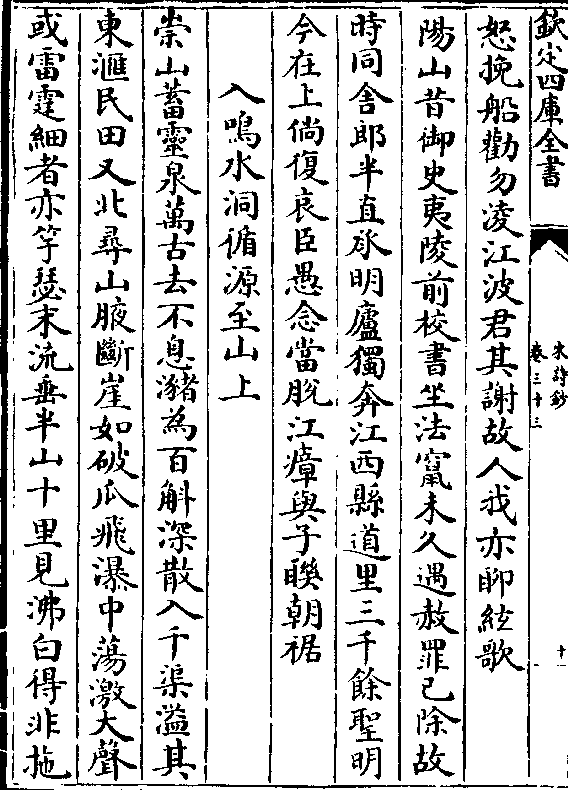 欽定四庫全書
宋詩鈔
卷三十三
十一
怒挽船勸勿凌江波君其謝故人我亦聊絃歌
陽山昔御史夷陵前校書坐法竄未久遇赦罪已除故
時同舍郎半直承明廬獨奔江西縣道里三千餘聖明
今在上倘復哀臣愚念當脫江瘴與子聮朝裾
入鳴水洞循源至山上
崇山蓄靈泉萬古去不息瀦為百斛深散入千渠溢其
東滙民田又北尋山腋斷崖如破瓜飛瀑中蕩激大聲
或雷霆細者亦竽瑟末流垂半山十里見沸白得非拖